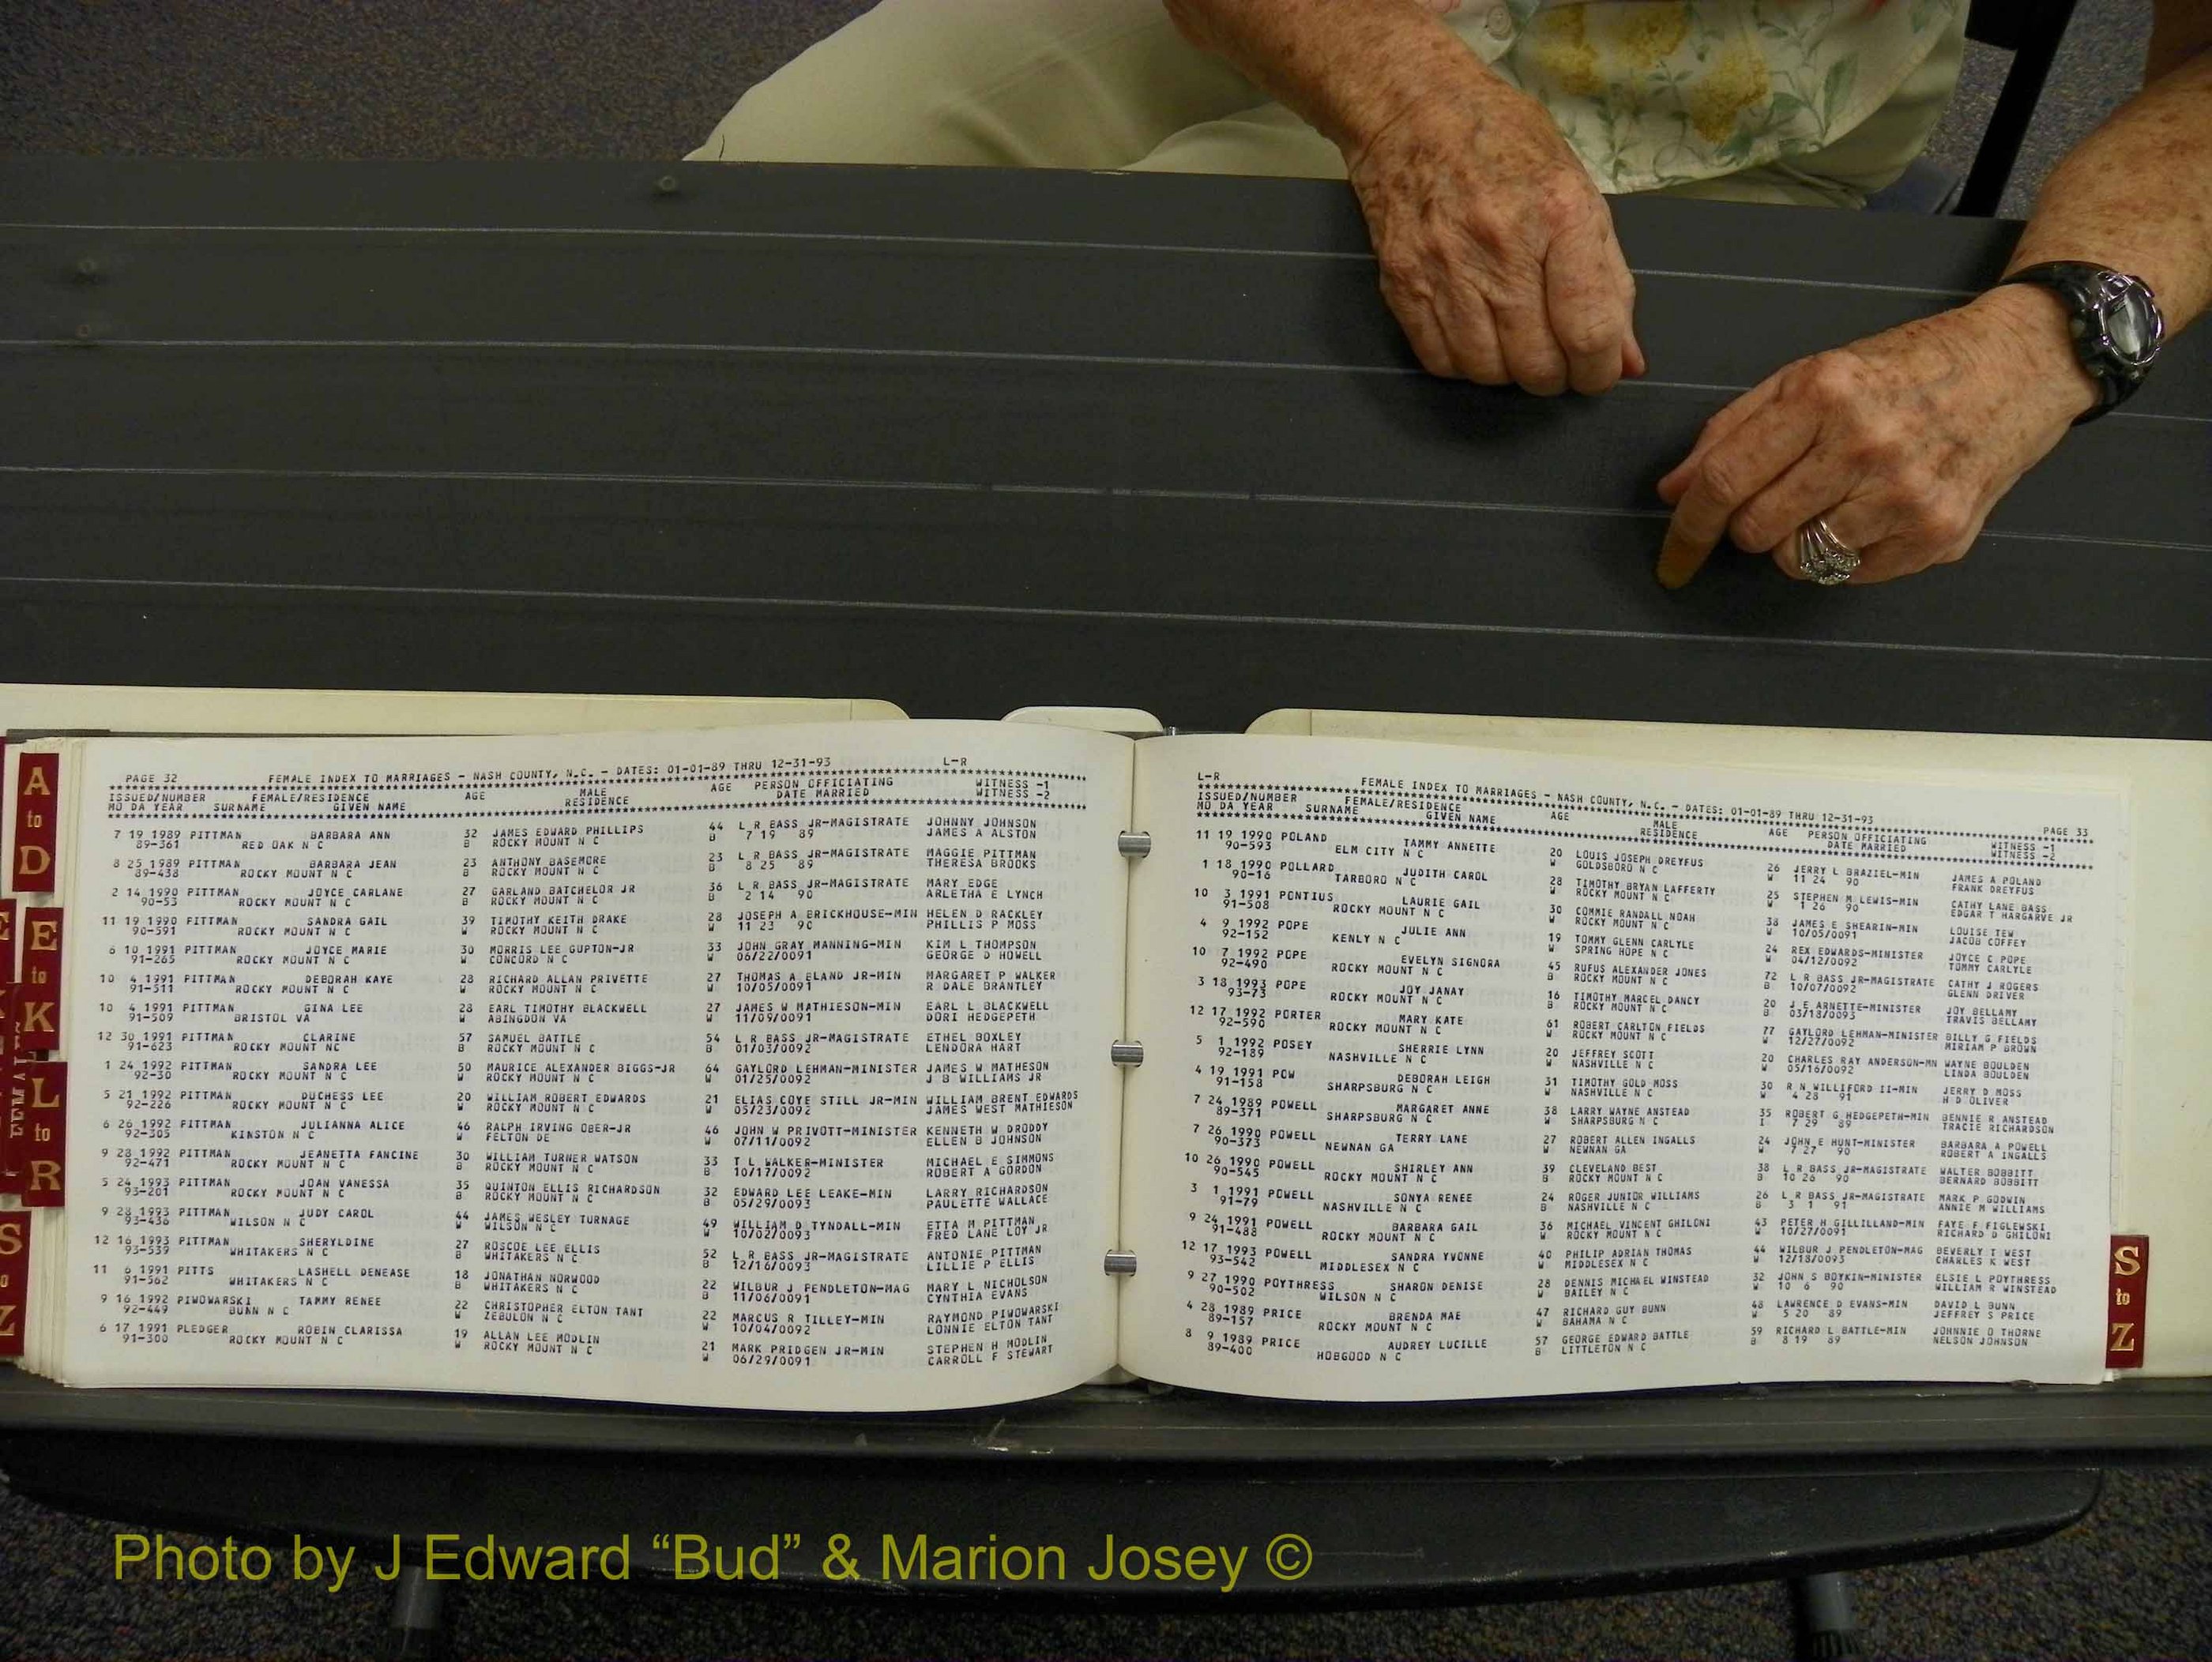 A
to
D
E
to
K
L
to
R
S
Z
PAGE 32 FEMALE INDEX TO MARRIAGES - NASH COUNTY, N.C. - DATES: 01-01-89 THRU 12-31-93 L-R
ISSUED/NUMBER FEMALE/RESIDENCE AGE MALE AGE PERSON OFFICIATING WITNESS -1
MO DA YEAR SURNAME GIVEN NAME RESIDENCE DATE MARRIED WITNESS -2
7 19 1989 PITTMAN BARBARA ANN 32 JAMES EDWARD PHILLIPS 44 L R BASS JR-MAGISTRATE JOHNNY JOHNSON
89-361 RED OAK N C B ROCKY MOUNT N C B 7 19 89 JAMES A ALSTON
8 25 1989 PITTMAN BARBARA JEAN 23 ANTHONY BASEMORE 23 L R BASS JR-MAGISTRATE MAGGIE PITTMAN
89-438 ROCKY MOUNT N C B ROCKY MOUNT N C B 8 25 89 THERESA BROOKS
2 14 1990 PITTMAN JOYCE CARLANE 27 GARLAND BATCHELOR JR 36 L R BASS JR-MAGISTRATE MARY EDGE
90-53 ROCKY MOUNT N C B ROCKY MOUNT N C B 2 14 90 ARLETHA E LYNCH
11 19 1990 PITTMAN SANDRA GAIL 39 TIMOTHY KEITH DRAKE 28 JOSEPH A BRICKHOUSE-MIN HELEN D RACKLEY
90-591 ROCKY MOUNT N C W ROCKY MOUNT N C W 11 23 90 PHILLIS P MOSS
6 10 1991 PITTMAN JOYCE MARIE 30 MORRIS LEE GUPTON-JR 33 JOHN GRAY MANNING-MIN KIM L THOMPSON
91-265 ROCKY MOUNT N C W CONCORD N C W 06/22/0091 GEORGE D HOWELL
10 4 1991 PITTMAN DEBORAH KAYE 28 RICHARD ALLAN PRIVETTE 27 THOMAS A BLAND JR-MIN MARGARET P WALKER
91-511 ROCKY MOUNT N C W ROCKY MOUNT N C W 10/05/0091 R DALE BRANTLEY
10 4 1991 PITTMAN GINA LEE 28 EARL TIMOTHY BLACKWELL 27 JAMES W MATHIESON-MIN EARL L BLACKWELL
91-509 BRISTOL VA W ABINGDON VA W 11/09/0091 DORI HEDGEPETH
12 30 1991 PITTMAN CLARINE 57 SAMUEL BATTLE 54 L R BASS JR-MAGISTRATE ETHEL BOXLEY
91-623 ROCKY MOUNT NC B ROCKY MOUNT N C B 01/03/0092 LENDORA HART
1 24 1992 PITTMAN SANDRA LEE 50 MAURICE ALEXANDER BIGGS-JR 64 GAYLORD LEHMAN-MINISTER JAMES W MATHESON
92-30 ROCKY MOUNT N C W ROCKY MOUNT N C W 01/25/0092 J B WILLIAMS JR
5 21 1992 PITTMAN DUCHESS LEE 20 WILLIAM ROBERT EDWARDS 21 ELIAS COYE STILL JR-MIN WILLIAM BRENT EDWARDS
92-226 ROCKY MOUNT N C W ROCKY MOUNT N C W 05/23/0092 JAMES WEST MATHIESON
6 26 1992 PITTMAN JULIANNA ALICE 46 RALPH IRVING OBER-JR 46 JOHN W PRIVOTT-MINISTER KENNETH W DRODDY
92-305 KINSTON N C W FELTON DE W 07/11/0092 ELLEN B JOHNSON
9 28 1992 PITTMAN JEANETTA FANCINE 30 WILLIAM TURNER WATSON 33 T L WALKER-MINISTER MICHAEL E SIMMONS
92-471 ROCKY MOUNT N C B ROCKY MOUNT N C B 10/17/0092 ROBERT A GORDON
5 24 1993 PITTMAN JOAN VANESSA 35 QUINTON ELLIS RICHARDSON 32 EDWARD LEE LEAKE-MIN LARRY RICHARDSON
93-201 ROCKY MOUNT N C B ROCKY MOUNT N C B 05/29/0093 PAULETTE WALLACE
9 28 1993 PITTMAN JUDY CAROL 44 JAMES WESLEY TURNAGE 49 WILLIAM D TYNDALL-MIN ETTA M PITTMAN
93-436 WILSON N C W WILSON N C W 10/02/0093 FRED LANE LOY JR
12 16 1993 PITTMAN SHERYLDINE 27 ROSCOE LEE ELLIS 52 L R BASS JR-MAGISTRATE ANTONIE PITTMAN
93-539 WHITAKERS N C B WHITAKERS N C B 12/16/0093 LILLIE P ELLIS
11 6 1991 PITTS LASHELL DENEASE 18 JONATHAN NORWOOD 22 WILBUR J PENDLETON-MAG MARY L NICHOLSON
91-562 WHITAKERS N C B WHITAKERS N C B 11/06/0091 CYNTHIA EVANS
9 16 1992 PIWOWARSKI TAMMY RENEE 22 CHRISTOPHER ELTON TANT 22 MARCUS R TILLEY-MIN RAYMOND PIWOWARSKI
92-449 BUNN N C W ZEBULON N C W 10/04/0092 LONNIE ELTON TANT
6 17 1991 PLEDGER ROBIN CLARISSA 19 ALLAN LEE MODLIN 21 MARK PRIDGEN JR-MIN STEPHEN H MODLIN
91-300 ROCKY MOUNT N C W ROCKY MOUNT N C W 06/29/0091 CARROLL F STEWART
L-R FEMALE INDEX TO MARRIAGES - NASH COUNTY, N.C. - DATES: 01-01-89 THRU 12-31-93 PAGE 33
ISSUED/NUMBER FEMALE/RESIDENCE AGE MALE AGE PERSON OFFICIATING WITNESS -1
MO DA YEAR SURNAME GIVEN NAME RESIDENCE DATE MARRIED WITNESS -2
11 19 1990 POLAND TAMMY ANNETTE 20 LOUIS JOSEPH DREYFUS 26 JERRY L BRAZIEL-MIN JAMES A POLAND
90-593 ELM CITY N C W GOLDSBORO N C W 11 24 90 FRANK DREYFUS
1 18 1990 POLLARD JUDITH CAROL 28 TIMOTHY BRYAN LAFFERTY 25 STEPHEN M LEWIS-MIN CATHY LANE BASS
90-16 TARBORO N C W ROCKY MOUNT N C W 1 26 90 EDGAR T HARGARVE JR
10 3 1991 PONTIUS LAURIE GAIL 30 COMMIE RANDALL NOAH 38 JAMES E SHEARIN-MIN LOUISE TEW
91-508 ROCKY MOUNT N C W ROCKY MOUNT N C W 10/05/0091 JACOB COFFEY
4 9 1992 POPE JULIE ANN 19 TOMMY GLENN CARLYLE 24 REX EDWARDS-MINISTER JOYCE C POPE
92-152 KENLY N C W SPRING HOPE N C W 04/12/0092 TOMMY CARLYLE
10 7 1992 POPE EVELYN SIGNORA 45 RUFUS ALEXANDER JONES 72 L R BASS JR-MAGISTRATE CATHY J ROGERS
92-490 ROCKY MOUNT N C B ROCKY MOUNT N C B 10/07/0092 GLENN DRIVER
3 18 1993 POPE JOY JANAY 16 TIMOTHY MARCEL DANCY 20 J E ARNETTE-MINISTER JOY BELLAMY
93-73 ROCKY MOUNT N C B ROCKY MOUNT N C B 03/18/0093 TRAVIS BELLAMY
12 17 1992 PORTER MARY KATE 61 ROBERT CARLTON FIELDS 77 GAYLORD LEHMAN-MINISTER BILLY G FIELDS
92-590 ROCKY MOUNT N C W ROCKY MOUNT N C W 12/27/0092 MIRIAM P BROWN
5 1 1992 POSEY SHERRIE LYNN 20 JEFFREY SCOTT 20 CHARLES RAY ANDERSON-MN WAYNE BOULDEN
92-189 NASHVILLE N C W NASHVILLE N C W 05/16/0092 LINDA BOULDEN
4 19 1991 POW DEBORAH LEIGH 31 TIMOTHY GOLD MOSS 30 R N WILLIFORD II-MIN JERRY D MOSS
91-158 SHARPSBURG N C W NASHVILLE N C W 4 28 91 H D OLIVER
7 24 1989 POWELL MARGARET ANNE 38 LARRY WAYNE ANSTEAD 35 ROBERT G HEDGEPETH-MIN BENNIE R ANSTEAD
89-371 SHARPSBURG N C W SHARPSBURG N C I 7 29 89 TRACIE RICHARDSON
7 26 1990 POWELL TERRY LANE 27 ROBERT ALLEN INGALLS 24 JOHN E HUNT-MINISTER BARBARA A POWELL
90-373 NEWNAN GA W NEWNAN GA W 7 27 90 ROBERT A INGALLS
10 26 1990 POWELL SHIRLEY ANN 39 CLEVELAND BEST 38 L R BASS JR-MAGISTRATE WALTER BOBBITT
90-545 ROCKY MOUNT N C B ROCKY MOUNT N C B 10 26 90 BERNARD BOBBITT
3 1 1991 POWELL SONYA RENEE 24 ROGER JUNIOR WILLIAMS 26 L R BASS JR-MAGISTRATE MARK P GODWIN
91-79 NASHVILLE N C B NASHVILLE N C B 3 1 91 ANNIE M WILLIAMS
9 24 1991 POWELL BARBARA GAIL 36 MICHAEL VINCENT GHILONI 43 PETER H GILLILLAND-MIN FAYE F FIGLEWSKI
91-488 ROCKY MOUNT N C W ROCKY MOUNT N C W 10/27/0091 RICHARD D GHILONI
12 17 1993 POWELL SANDRA YVONNE 40 PHILIP ADRIAN THOMAS 44 WILBUR J PENDLETON-MAG BEVERLY T WEST
93-542 MIDDLESEX N C W MIDDLESEX N C W 12/18/0093 CHARLES K WEST
9 27 1990 POYTHRESS SHARON DENISE 28 DENNIS MICHAEL WINSTEAD 32 JOHN S BOYKIN-MINISTER ELSIE L POYTHRESS
90-502 WILSON N C W BAILEY N C W 10 6 90 WILLIAM R WINSTEAD
4 28 1989 PRICE BRENDA MAE 47 RICHARD GUY BUNN 48 LAWRENCE D EVANS-MIN DAVID L BUNN
89-157 ROCKY MOUNT N C W BAHAMA N C W 5 20 89 JEFFREY S PRICE
8 9 1989 PRICE AUDREY LUCILLE 57 GEORGE EDWARD BATTLE 59 RICHARD L BATTLE-MIN JOHNNIE D THORNE
89-400 HOBGOOD N C B LITTLETON N C B 8 19 89 NELSON JOHNSON
S
to
Z
Photo by J Edward “Bud” & Marion Josey ©